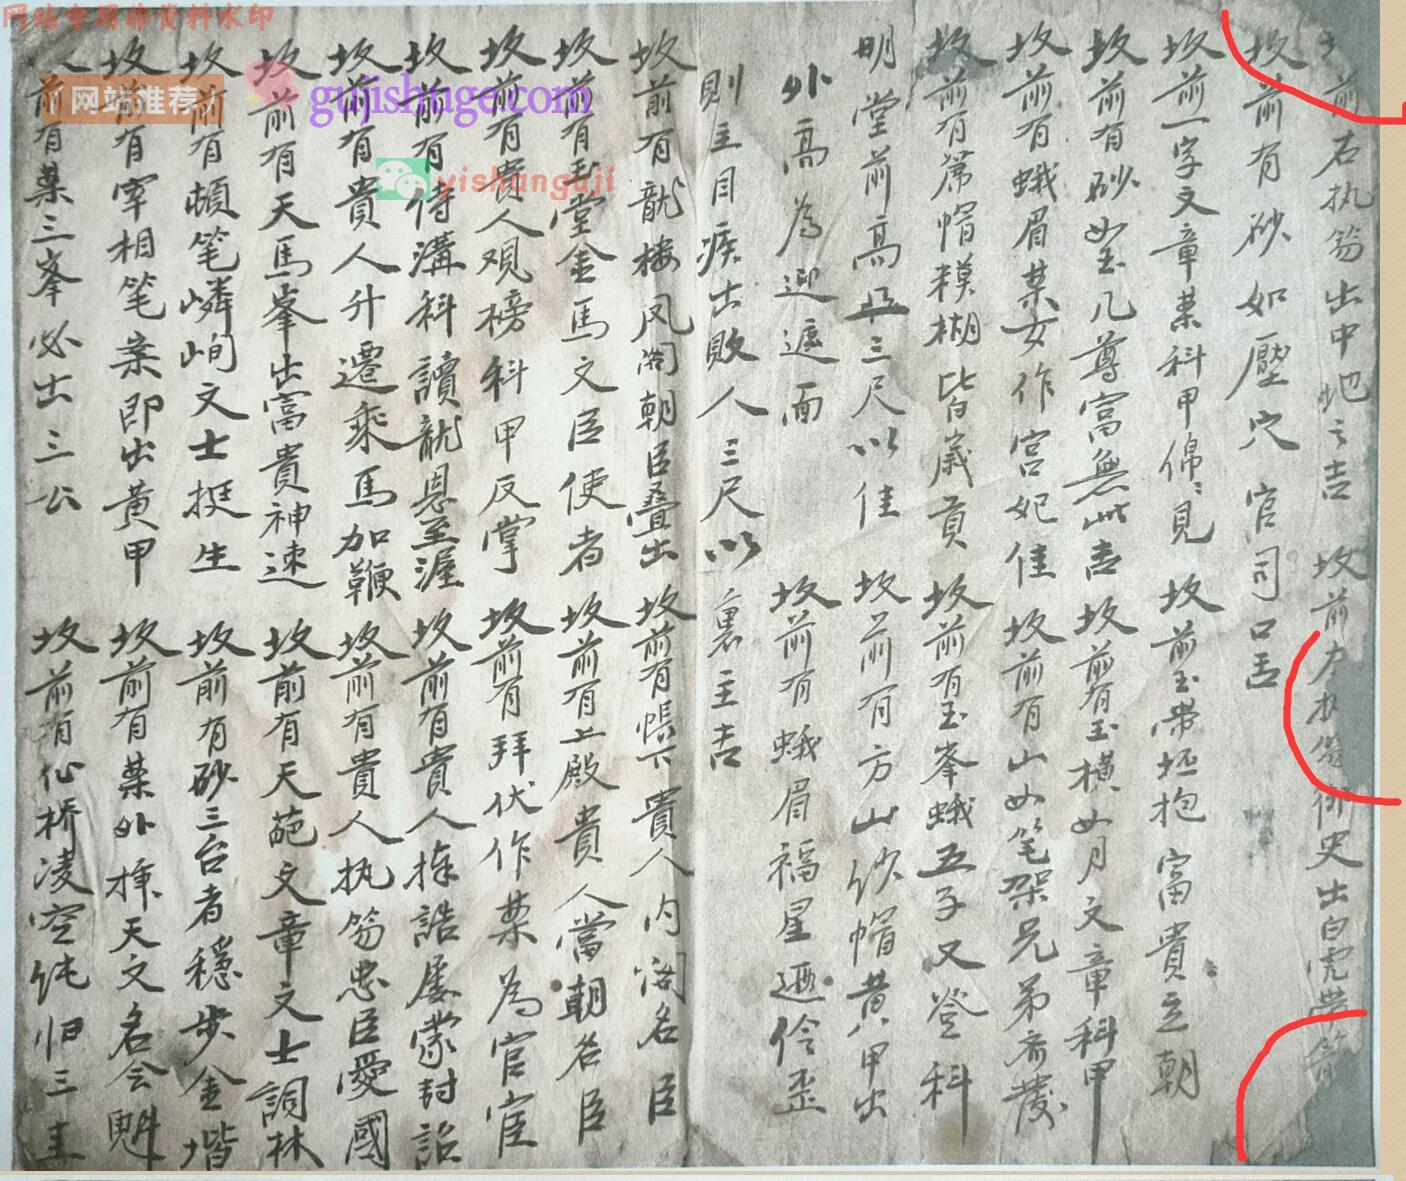 网站专用非资料水印
网站推荐
gujishuge.com
yishanguji
前右执笏出中地之吉 坟前 御史出白虎带
坟前有砂如壓穴 官司口舌
坟前一字文章案科甲绵見 坟前玉帶坯抱富貴立朝
坟前有砂如玉几尊富無此吉 坟前有玉橫如月文章科甲
坟前有蛾眉案女作宮妃佳 坟前有山如笔架兄弟齐發
坟前有席帽模糊皆歲貢 坟前有玉峯蛾五子又登科
明堂前高 三尺以佳 坟前有方山纱帽黄甲出
外高為迎遮面 坟前有蛾眉福星 伶歪
則主目疾出敗人三尺以裏主吉
坟前有龍楼凤阁朝臣叠出 坟前有帳下貴人内阁名臣
坟前有玉堂金馬文臣使者 坟前有上殿貴人當朝名臣
坟前有贵人观榜科甲反掌 坟前有拜伏作案為官宦
坟前有侍溝科讀龍恩至渥 坟前有貴人 誥屡蒙封詔
坟前有貴人升遷乘馬加鞭 坟前有貴人执笏忠臣愛國
坟前有天馬峯出富貴神速 坟前有天葩文章文士詞林
坟前有頓笔嶙峋文士挺生 坟前有砂三台者穩步金堦
坟前有宰相笔案即出黄甲 坟前有案外揮天文名会魁
前有案三峯必出三公 坟前有仙桥凌空 归三主